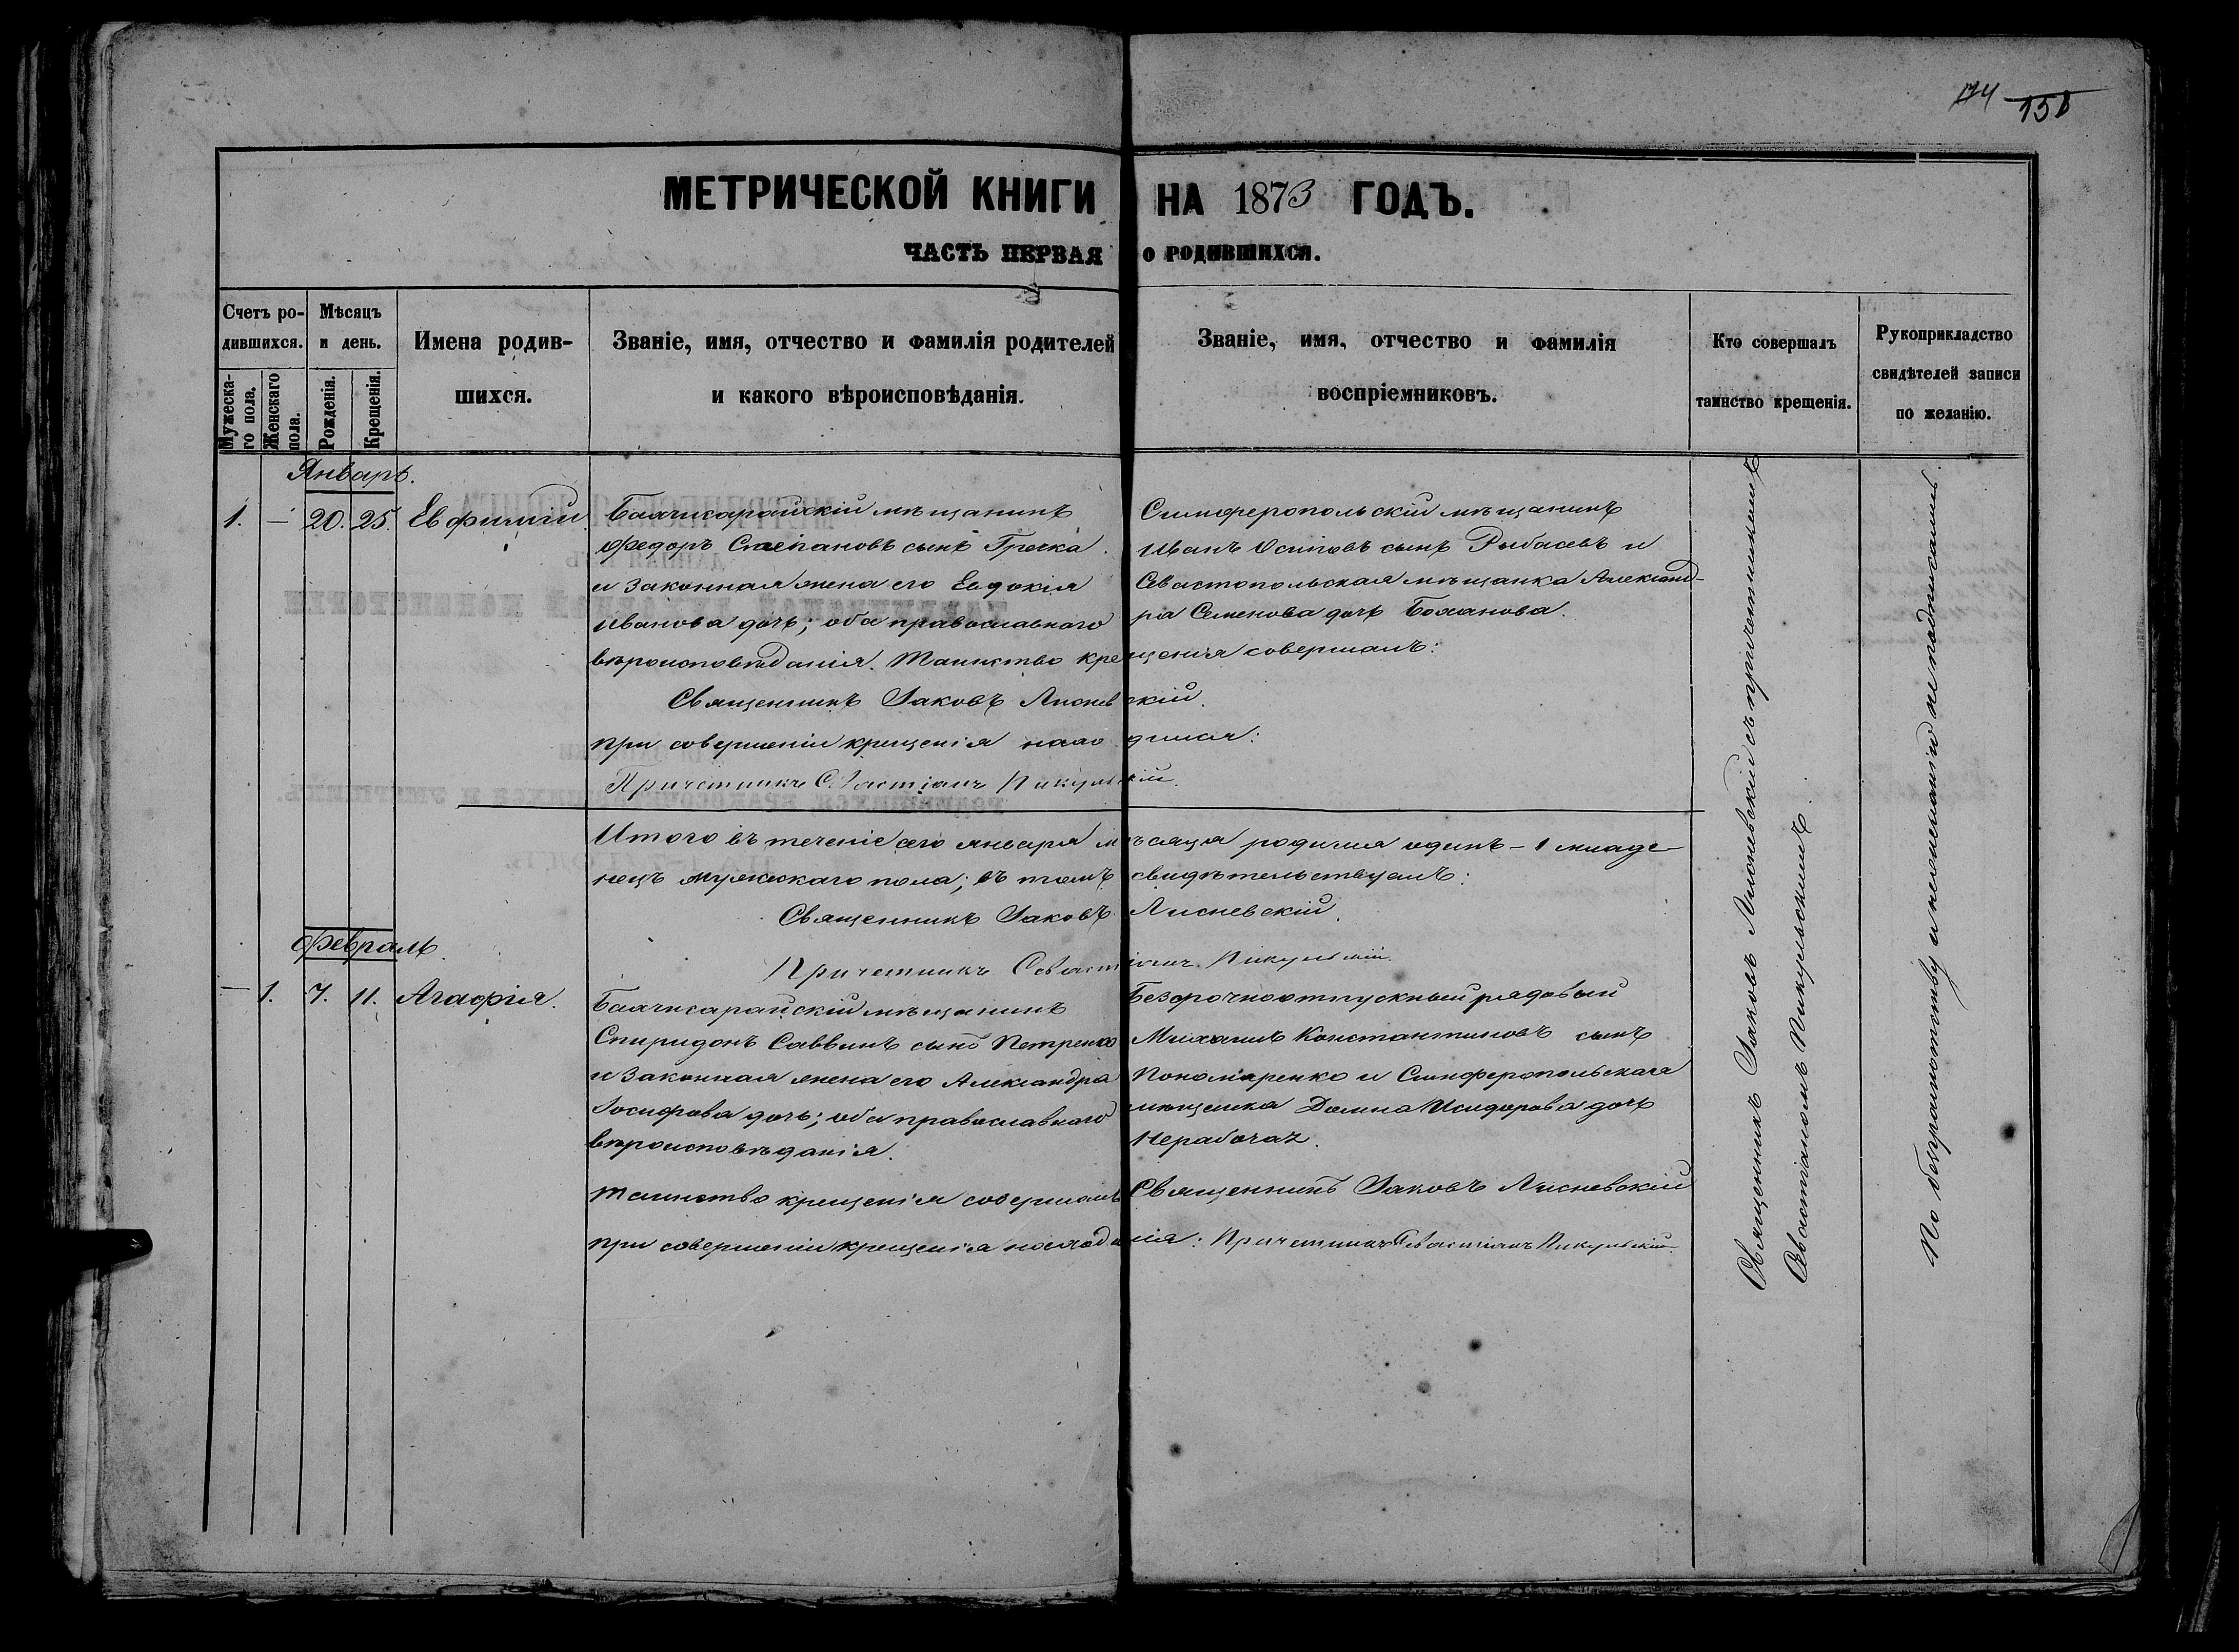 174 158
МЕТРИЧЕСКОЙ КНИГИ НА 1873 ГОДЪ.
ЧАСТЬ ПЕРВАЯ О РОДИВШИХСЯ.
Счетъ ро-
дившихся.
Мужеска-
го пола.
Женскаго
пола.
Мѣсяцъ
и день.
Рожденія.
Крещенія.
Имена родив-
шихся.
Званіе, имя, отчество и фамилія родителей
и какого вѣроисповѣданія.
Званіе, имя, отчество и фамилія
воспріемниковъ.
Кто совершалъ
таинство крещенія.
Рукоприкладство
свидѣтелей записи
по желанію.
Январь.
1. — 20. 25. Евфимій.
Бахчисарайскій мѣщанинъ
Федоръ Степановъ сынъ Гречка
и законная жена его Евдокія
Иванова дочь; оба православнаго
вѣроисповѣданія. Таинство крещенія совершалъ:
Симферопольскій мѣщанинъ
Иванъ Осиповъ сынъ Рыбасевъ и
Севастопольская мѣщанка Александ-
ра Семенова дочь Боханова.
Священникъ Іаковъ Лисневскій.
при совершеніи крещенія находился:
Причетникъ Севастіанъ Пикульскій.
Итого въ теченіе сего января мѣсяца родился одинъ — 1 младе-
нецъ мужескаго пола; въ томъ свидѣтельствуемъ:
Священникъ Іаковъ Лисневскій.
Причетникъ Севастіанъ Пикульскій.
Февраль.
— 1. 7. 11. Агафія.
Бахчисарайскій мѣщанинъ
Спиридонъ Саввинъ сынъ Петренко
и законная жена его Александра
Іосифова дочь; оба православнаго
вѣроисповѣданія.
Безсрочноотпускный рядовый
Михаилъ Константиновъ сынъ
Пономаренко и Симферопольская
мѣщанка Домна Исидорова дочь
Нерабочая.
Таинство крещенія совершалъ Священникъ Іаковъ Лисневскій
при совершеніи крещенія находился: Причетникъ Севастіанъ Пикульскій.
Священникъ Іаковъ Лисневскій съ причетникомъ
Севастіаномъ Пикульскимъ.
По безграмотству и нежеланію не подписались.